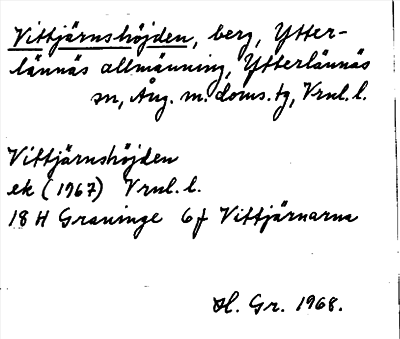 Vittjärnshöjden, berg, Ytter-
lännäs allmänning, Ytterlännäs
sn, Ång. m. doms.tg, Vrnl. l.
Vittjärnshöjden
ek (1967) Vrnl. l.
18 H Graninge 6 f Vittjärnarna
Sl. Gr. 1968.